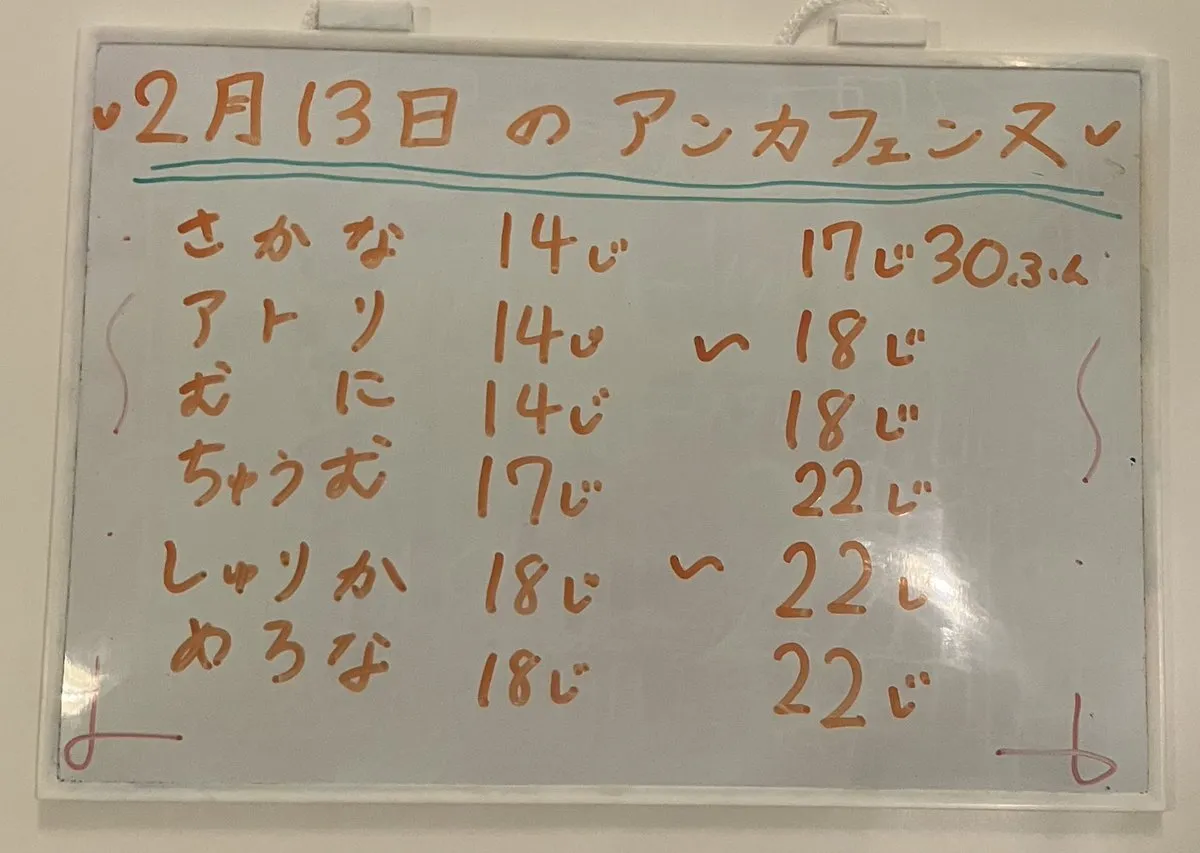 2月13日のアンカフェンヌ
さかな 14じ 17じ30ふん
アトリ 14じ 〜 18じ
むに 14じ 18じ
ちゅうむ 17じ 22じ
しゅりか 18じ 〜 22じ
めろな 18じ 22じ